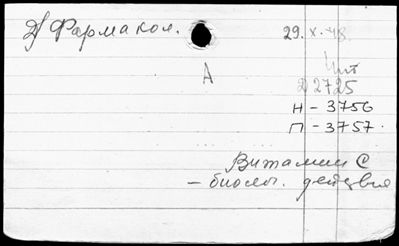 Фармакол. 29.X.48.
Чит
A
Д 2725
Н - 3756
П - 3757.
Витамин С
- биолог. действие